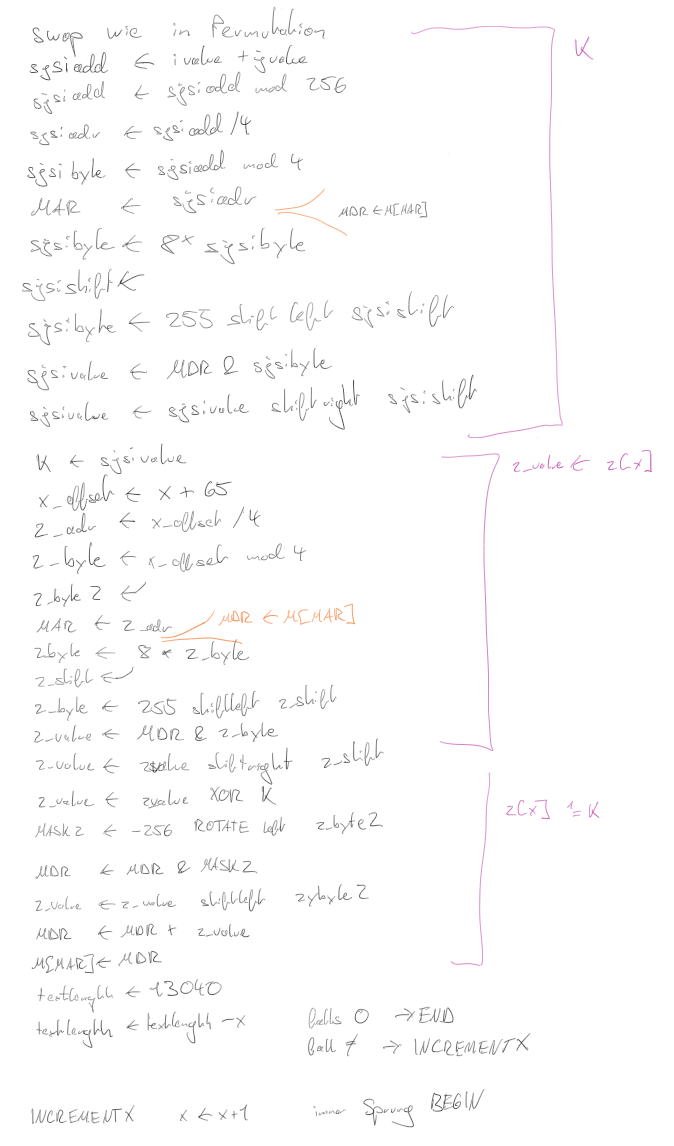 Swap wie in Permutation
K
sjsiadd ← ivalue + jvalue
sjsiadd ← sjsiadd mod 256
sjsiadr ← sjsiadd /4
sjsibyte ← sjsiadd mod 4
MAR ← sjsiadr
MDR ← M[MAR]
sjsibyte ← 8* sjsibyte
sjsishift ←
sjsibyte ← 255 shift left sjsishift
sjsivalue ← MDR & sjsibyte
sjsivalue ← sjsivalue shiftright sjsishift
K ← sjsivalue
z_value ← z[x]
x_offset ← x + 65
z_adr ← x_offset /4
z_byte ← x_offset mod 4
z_byte2 ←
MAR ← z_adr
MDR ← M[MAR]
zbyte ← 8 * z_byte
z_shift ←
z_byte ← 255 shiftleft z_shift
z_value ← MDR & z_byte
z_value ← zvalue shiftright z_shift
z_value ← zvalue XOR K
z[x] ^= K
MASK2 ← -256 ROTATE left z_byte2
MDR ← MDR & MASK2
z_value ← z_value shiftleft zybyte2
MDR ← MDR + z_value
M[MAR] ← MDR
textlength ← 13040
textlength ← textlength -x falls 0 → END
fall ≠ → INCREMENTX
INCREMENTX x ← x+1 immer Sprung BEGIN